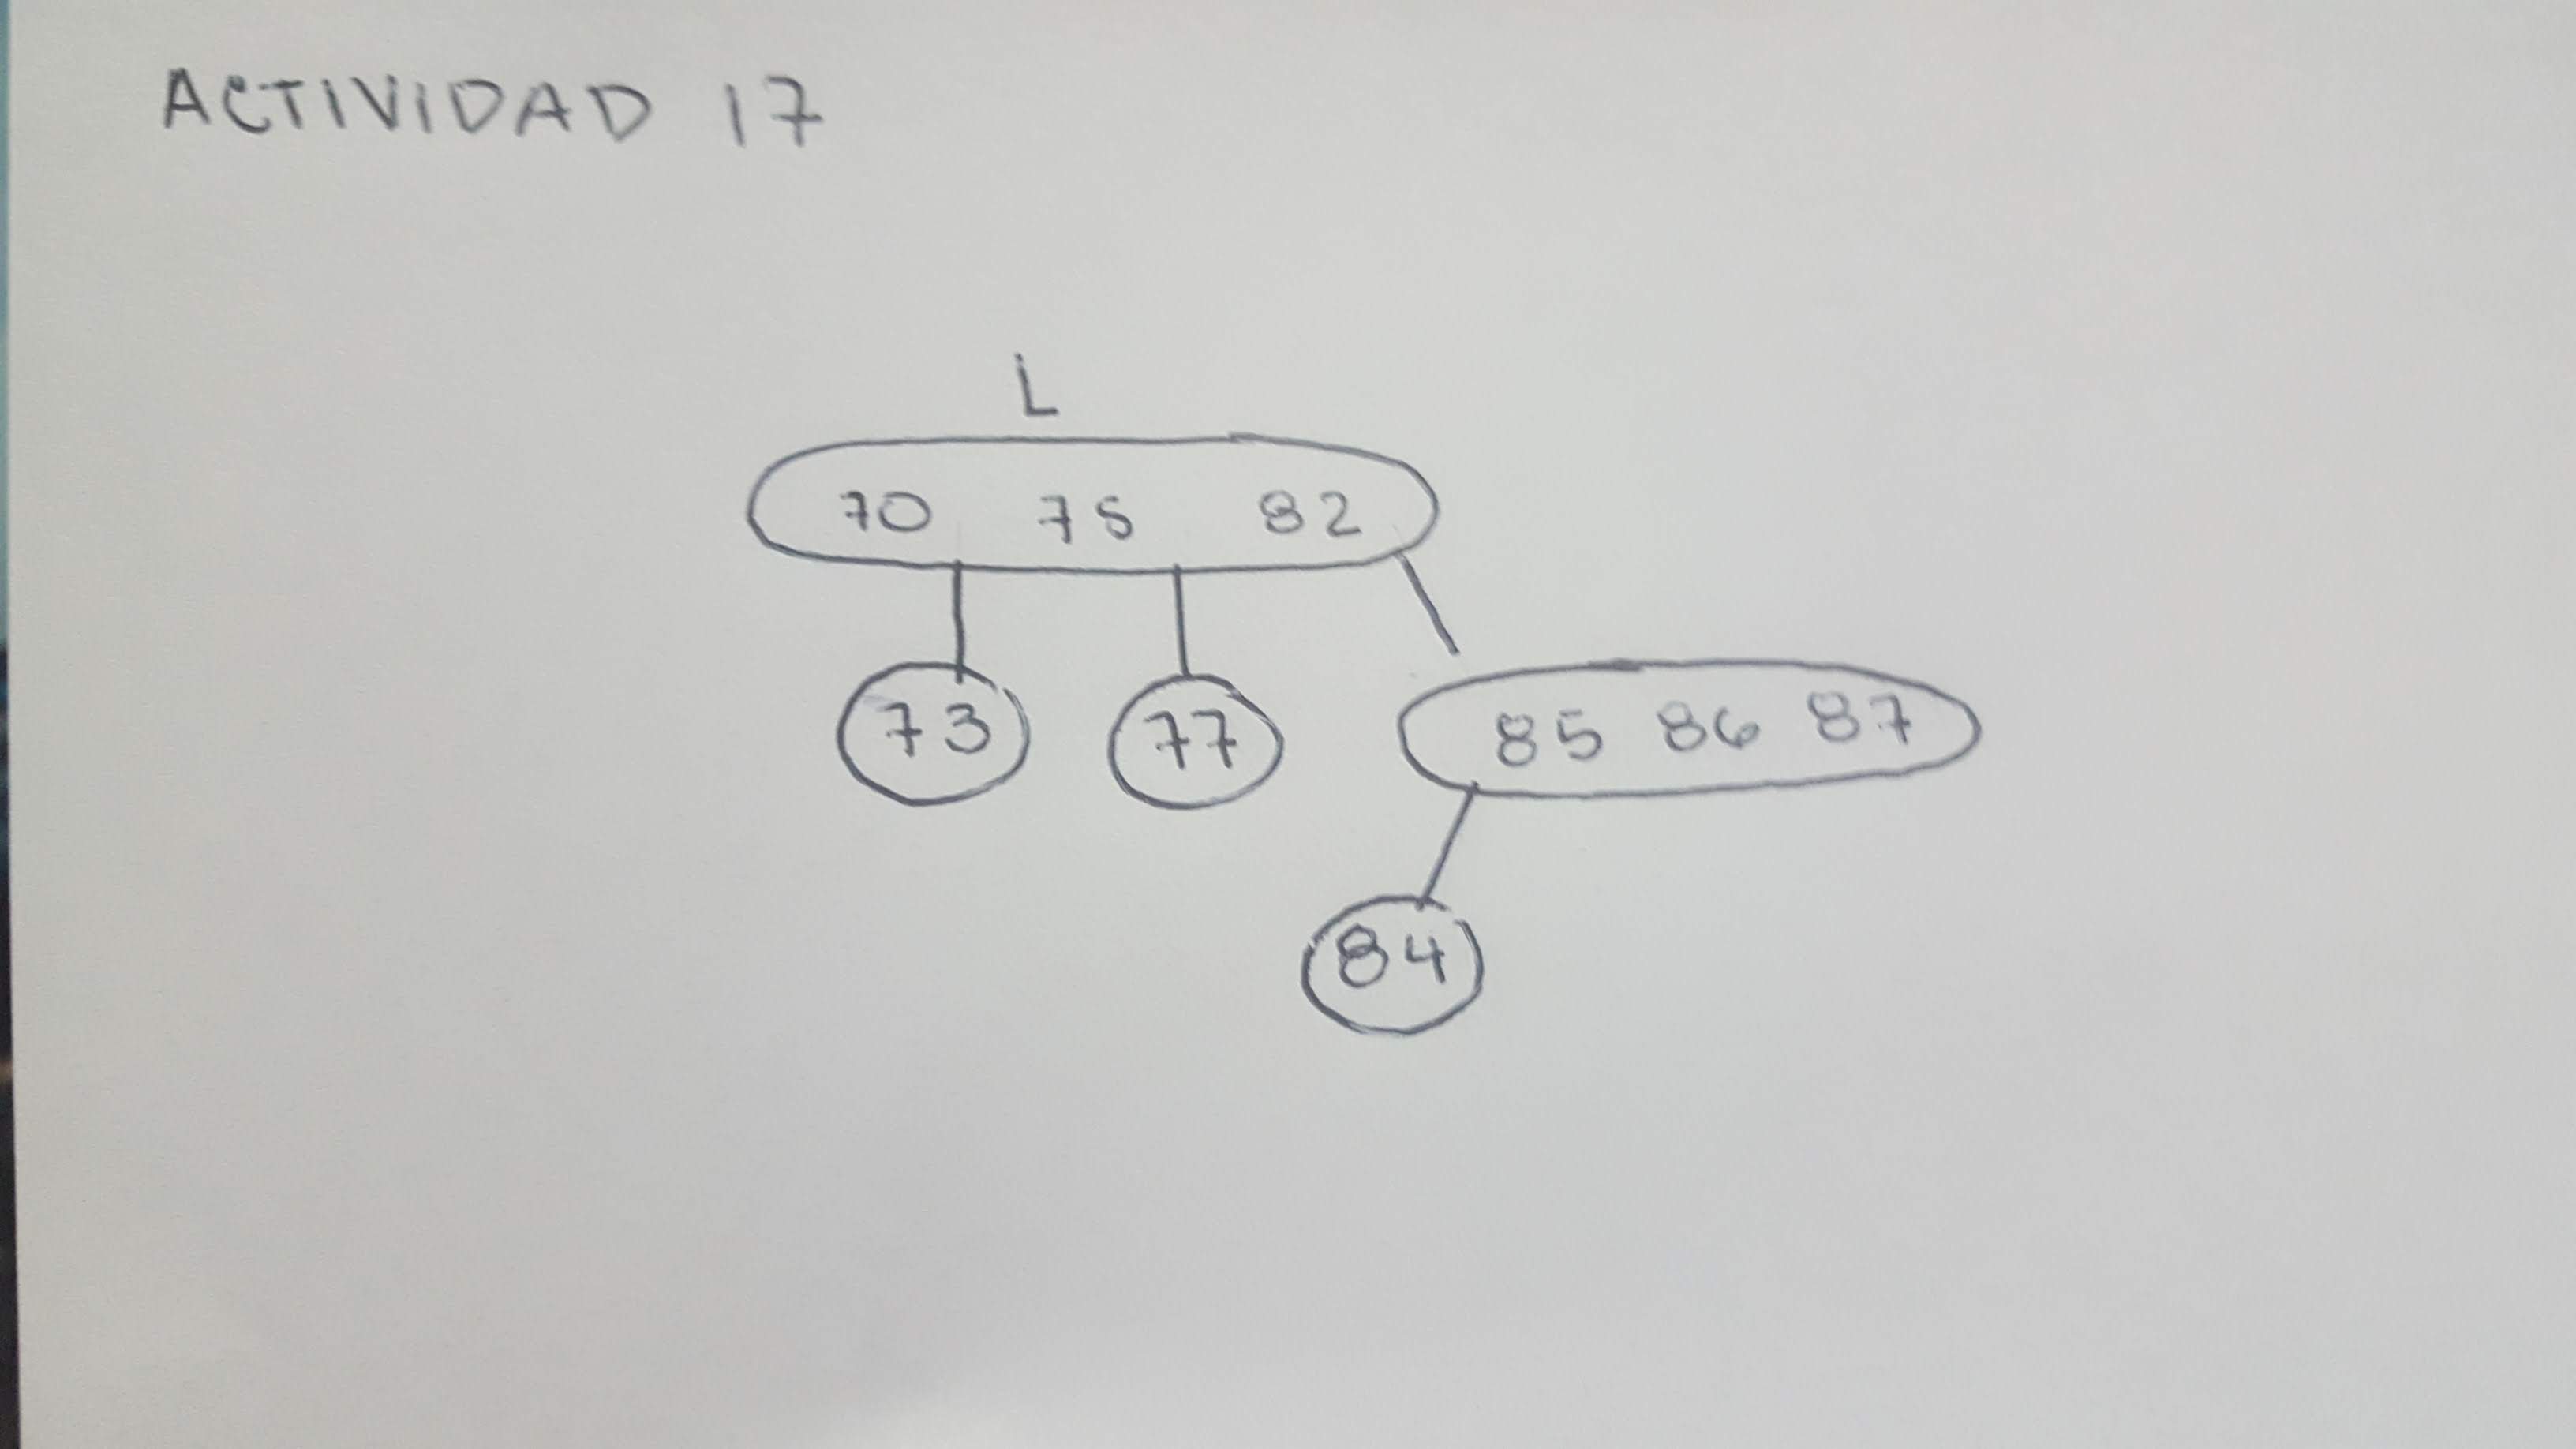 ACTIVIDAD 17
L
70 75 82
73 77 85 86 87
84